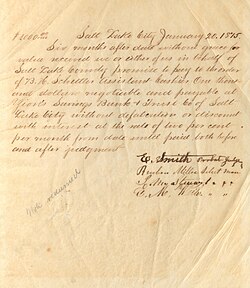 $1000.00 Salt Lake City January 20. 1875
Six months after date without grace for
value received we or either of us in behalf of
Salt Lake County promise to pay to the order
of B. H. Schettler Assistant Cashier One thou
sand dollars negotiable and payable at
Zion's Savings Bank & Trust Co of Salt
Lake City without defalcation or discount
with interest at the rate of two per cent
per month from date until paid both before
and after judgment
E. Smith Probate Judge
Reuben Miller Select man
" "
" "
Not redeemed